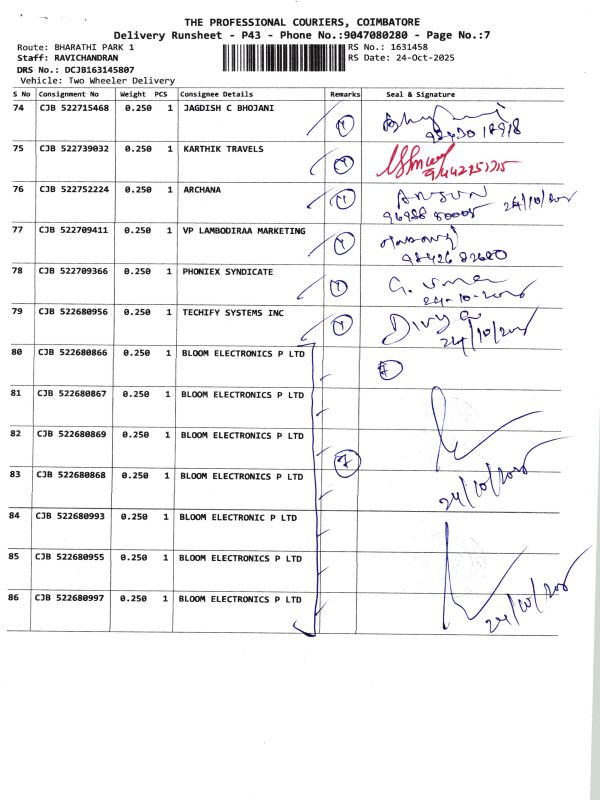 THE PROFESSIONAL COURIERS, COIMBATORE
Delivery Runsheet - P43 - Phone No.:9047080280 - Page No.:7
Route: BHARATHI PARK 1 RS No.: 1631458
Staff: RAVICHANDRAN RS Date: 24-Oct-2025
DRS No.: DCJB163145807
Vehicle: Two Wheeler Delivery
S No Consignment No Weight PCS Consignee Details Remarks Seal & Signature
74 CJB 522715468 0.250 1 JAGDISH C BHOJANI 1
75 CJB 522739032 0.250 1 KARTHIK TRAVELS 1
76 CJB 522752224 0.250 1 ARCHANA 1 24/10/2025
96988 80005
77 CJB 522709411 0.250 1 VP LAMBODIRAA MARKETING 1
98426 82680
78 CJB 522709366 0.250 1 PHONIEX SYNDICATE 1 G. Uma
24-10-2025
79 CJB 522680956 0.250 1 TECHIFY SYSTEMS INC 1 Divya
24/10/2025
80 CJB 522680866 0.250 1 BLOOM ELECTRONICS P LTD 7
81 CJB 522680867 0.250 1 BLOOM ELECTRONICS P LTD
82 CJB 522680869 0.250 1 BLOOM ELECTRONICS P LTD 7
83 CJB 522680868 0.250 1 BLOOM ELECTRONICS P LTD 24/10/2025
84 CJB 522680993 0.250 1 BLOOM ELECTRONIC P LTD
85 CJB 522680955 0.250 1 BLOOM ELECTRONICS P LTD
86 CJB 522680997 0.250 1 BLOOM ELECTRONICS P LTD 24/10/2025